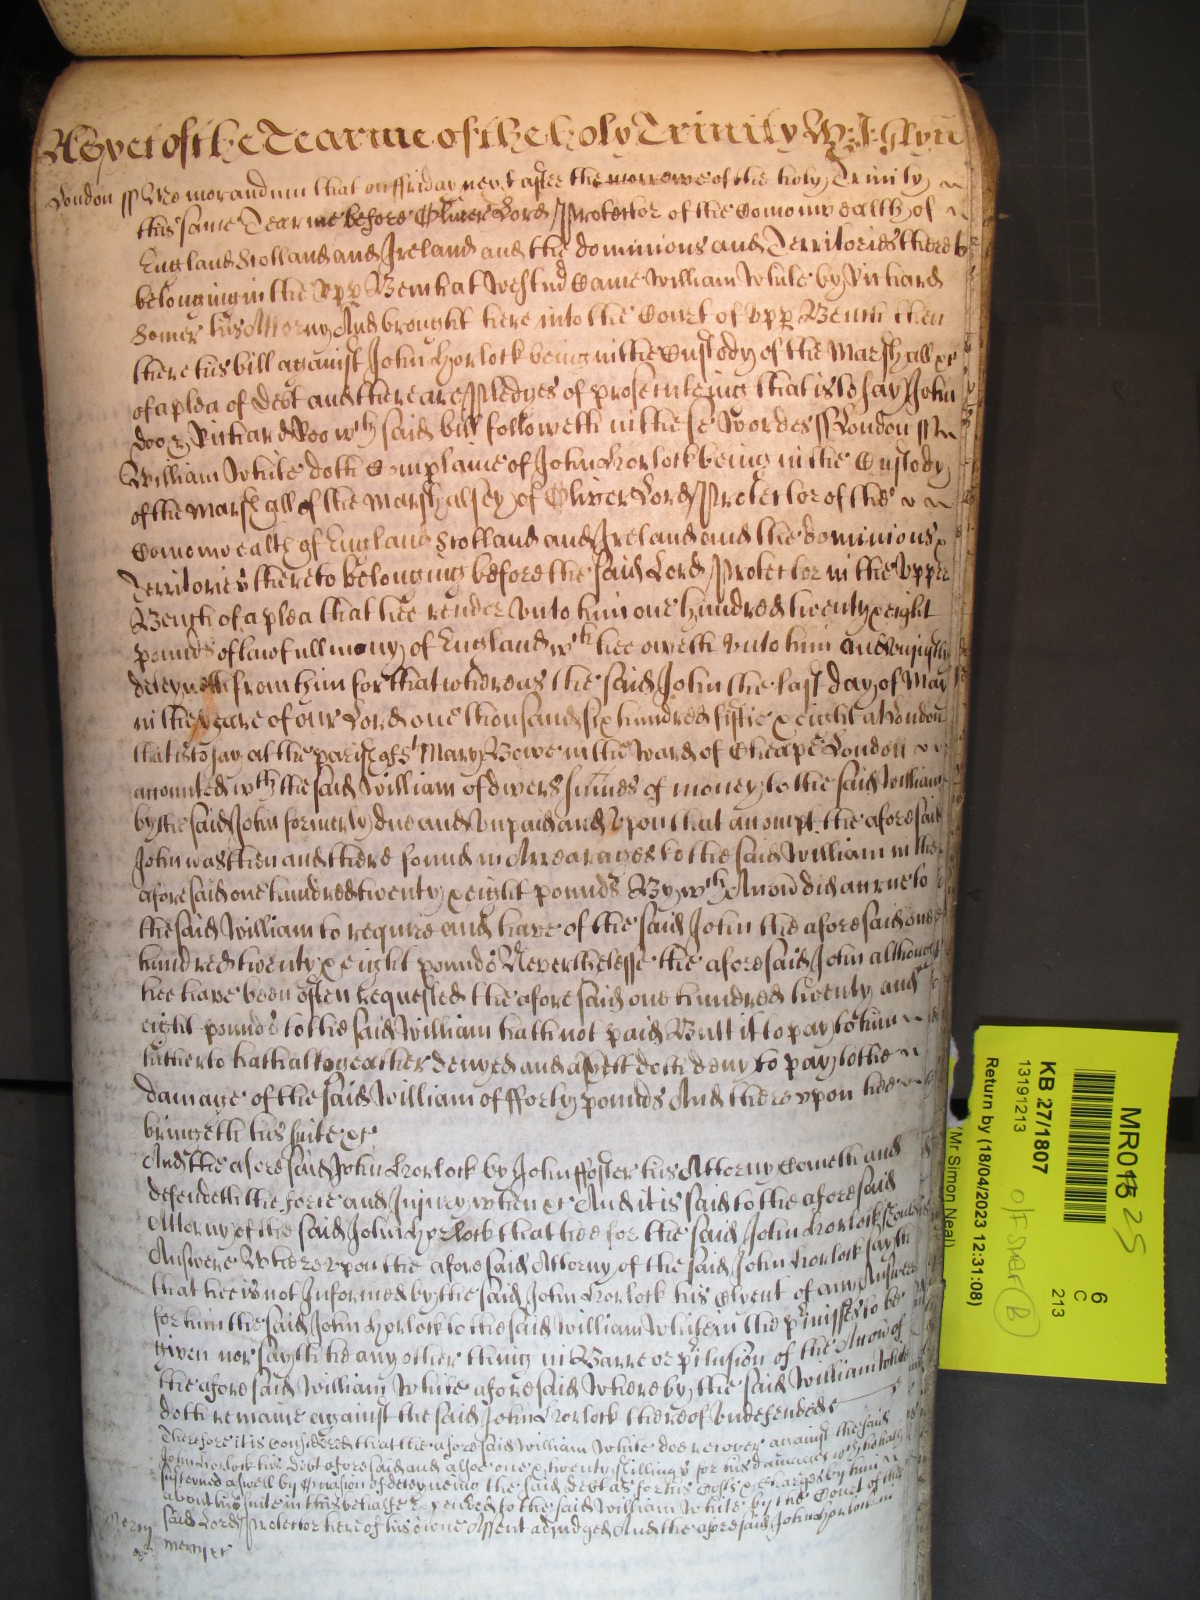 As yet of the Tearme of the holy Trinity
London ss Memorandum that on ffriday next after the morrowe of the holy Trinity
this same Tearme before Oliver Lord Protector of the Comonwealth of
England Scotland and Ireland and the dominions and Territories thereto
belonging in the upp Bench at Westmr Came William White by Richard
Somer his Attorny And brought here into the Court of upp Bench then
there his bill against John Horlock being in the Custody of the Marshall &c
of a plea of debt and there are Pledges of prosecuteing that is to say John
Doo & Richard Roo wch said bill followeth in these wordes ss London ss
William White doth Complaine of John Horlock being in the Custody
of the Marshall of the Marshalsey of Oliver Lord Protector of the
Comonwealth of England Scotland and Ireland and the dominions &
Territories thereto belonging before the said Lord Protector in the upper
Bench of a plea that hee render unto him one hundred twenty & eight
pounds of lawfull mony of England wch hee oweth unto him and unjustly
deteyneth from him for that whereas the said John the last day of May
in the yeare of our Lord one thousand six hundred fiftie & eight at London
that is to say at the parish of St Mary Bowe in the ward of Cheape London
accounted wth the said William of divers summes of money to the said William
by the said John formerly due and unpaid and upon that accompt the aforesaid
John was then and there found in Arrearages to the said William in the
aforesaid one hundred twenty & eight pounds By wch Accon did accrue to
the said William to require and have of the said John the aforesaid one
hundred twenty & eight pounds Neverthelesse the aforesaid John although
hee have been often requested the aforesaid one hundred twenty and
eight pounds to the said William hath not paid Butt it to pay to him
hitherto hath altogeather denyed and as yett doth deny to pay to the
damage of the said William of fforty pounds And thereupon hee
bringeth his suite &c
And the aforesaid John Horlock by John ffoster his Attorny Cometh and
defendeth the force and Injury when &c And it is said to the aforesaid
Attorny of the said John Horlock that hee for the said John Horlock should
Answere Whereupon the aforesaid Attorny of the said John Horlock sayth
that hee is not Informed by the said John Horlock his Clyent of any Answere
for him the said John Horlock to the said William White in the pmisses to be
given nor sayth hee any other thing in Barre or pclusion of the Accon of
the aforesaid William White aforesaid whereby the said William White
doth remaine against the said John Horlock thereof undefended
Therefore it is Considered that the aforesaid William White doe recover against the said
John Horlock his debt aforesaid and alsoe one & twenty shillings for his damages wch hee hath
susteyned aswell by Occasion of deteyneing the said debt as for his Costs & Charges by him
about his suite in this behalfe expended to the said William White by the Court of the
said Lord Protector here of his owne Assent adjudged And the aforesaid John Horlock in
mercy &c
mercy
MR015
25
6
C
213
KB 27/1807
13191213
Return by (18/04/2023 12:31:08)
(Mr Simon Neal)
B